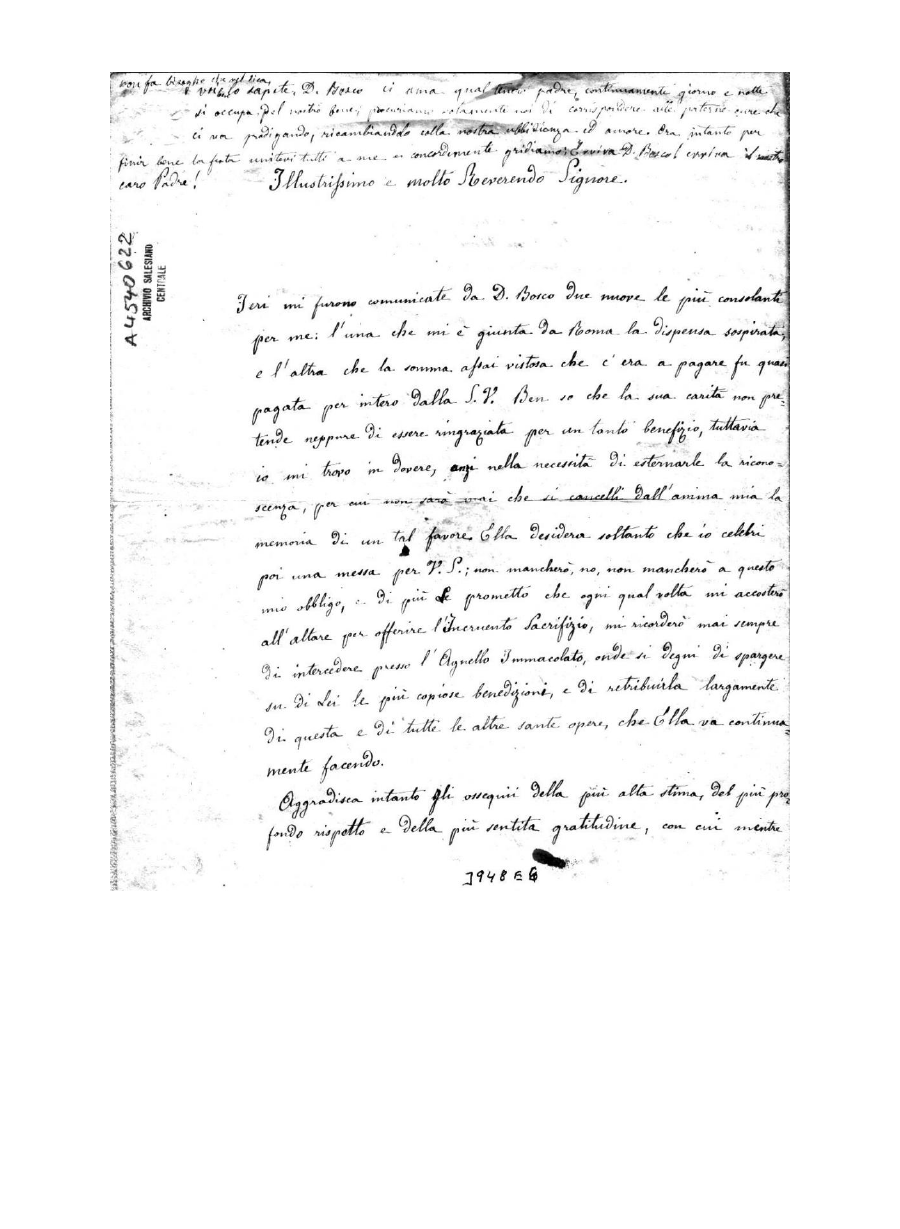 non fa bisogno che vel dica,
voi lo sapete, D. Bosco ci ama qual tenero padre, continuamente giorno e notte
si occupa pel nostro bene; procuriamo solamente noi di corrispondere alle paterne cure che
ci va prodigando, ricambiandolo colla nostra ubbidienza ed amore. Ora intanto per
finir bene la festa unitevi tutti a me e concordemente gridiamo: Evviva D. Bosco! evviva il nostro
caro Padre!
Illustrissimo e molto Reverendo Signore.
A4540622
ARCHIVIO SALESIANO
CENTRALE
Ieri mi furono comunicate da D. Bosco due nuove le più consolanti
per me: l'una che mi è giunta da Roma la dispensa sospirata,
e l'altra che la somma assai vistosa che c'era a pagare fu quasi
pagata per intero dalla S. V. Ben so che la sua carità non pre=
tende neppure di essere ringraziata per un tanto benefizio, tuttavia
io mi trovo in dovere, anzi nella necessità di esternarle la ricono=
scenza, per cui non sarà mai che si cancelli dall'anima mia la
memoria di un tal favore. Ella desidera soltanto che io celebri
poi una messa per V. S.; non mancherò, no, non mancherò a questo
mio obbligo, e di più Le prometto che ogni qual volta mi accosterò
all'altare per offerire l'Incruento Sacrifizio, mi ricorderò mai sempre
di intercedere presso l'Agnello Immacolato, onde si degni di spargere
su di Lei le più copiose benedizioni, e di retribuirla largamente
di questa e di tutte le altre sante opere, che Ella va continua=
mente facendo.
Aggradisca intanto gli ossequii della più alta stima, del più pro=
fondo rispetto e della più sentita gratitudine, con cui mentre
3948 E6